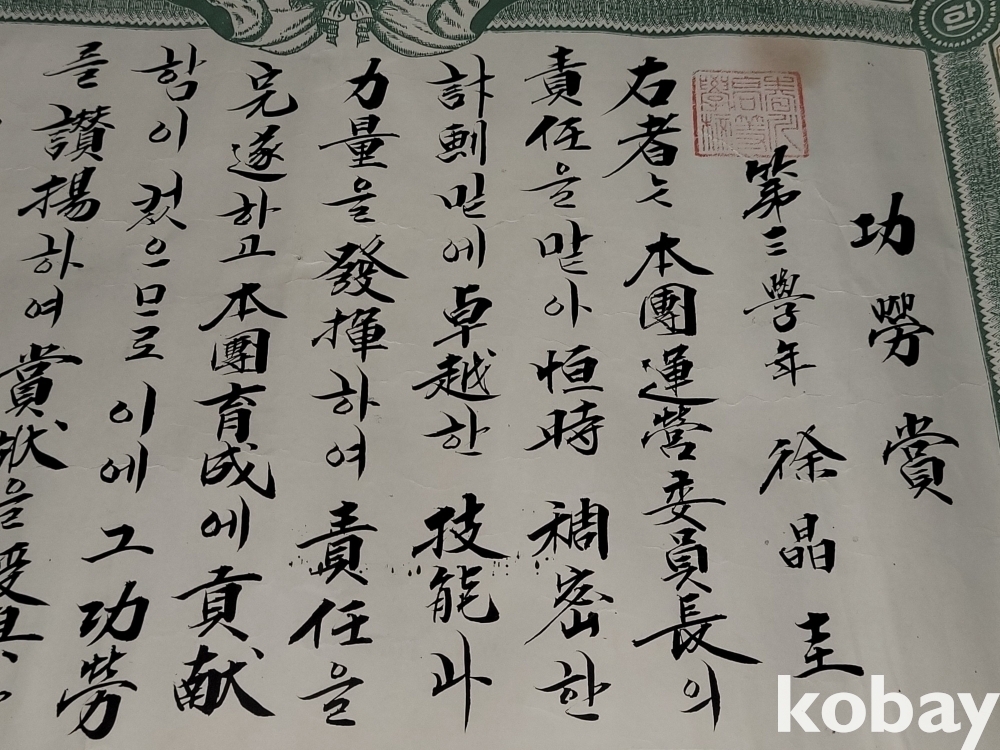 功勞賞
第三學年 徐晶圭
右者는 本團運營委員長의
責任을 맡아 恒時 稠密한
計劃밑에 卓越한 技能과
力量을 發揮하여 責任을
完遂하고 本團育成에 貢献
함이 컸으므로 이에 그 功勞
를 讃揚하여 賞狀을
kobay